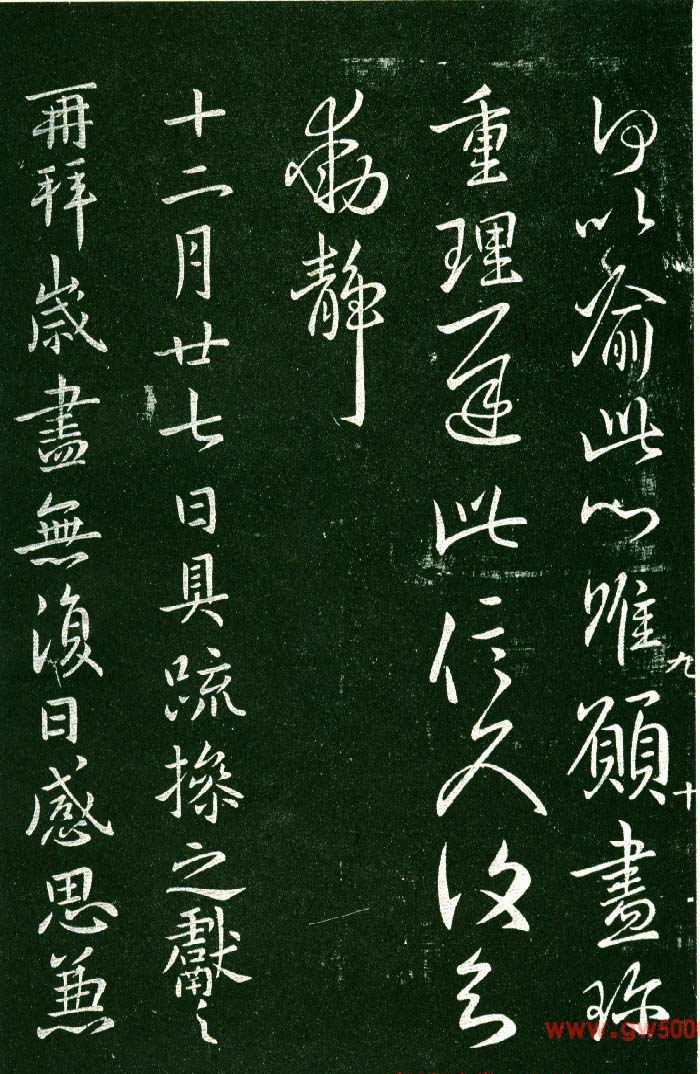 何以喻此心唯願盡珍
重理遲此信反復知
動靜
十二月廿七日具疏操之獻之
再拜歲盡無復日感思兼
九
十
www.gw500